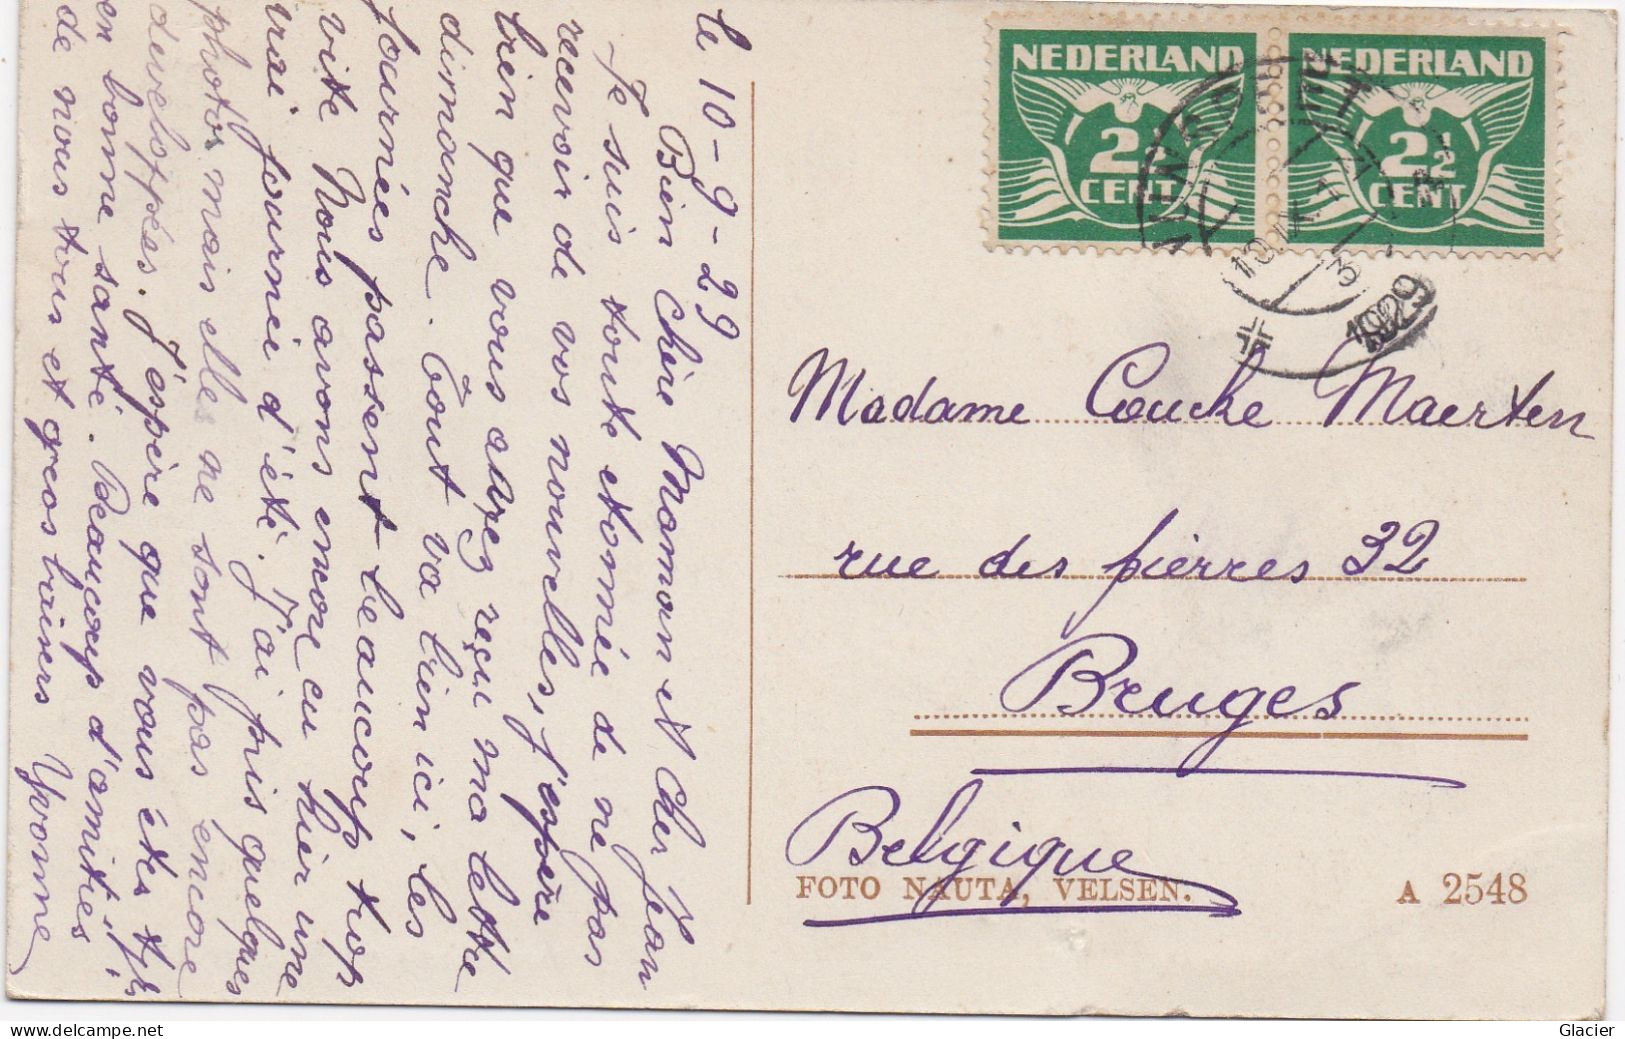 le 10-9-29
Bien chère Maman et cher Jean
Je suis toute étonnée de ne pas
recevoir de vos nouvelles, j'espère
bien que vous avez reçu ma lettre
dimanche. Tout va bien ici, les
journées passent beaucoup trop
vite. Nous avons encore eu hier une
vrai journée d'été. J'ai pris quelques
photos mais elles ne sont pas encore
developpées. J'espère que vous êtes ts
en bonne santé. Beaucoup d'amitiés
de nous tous et gros baisers Yvonne
NEDERLAND
2½
CENT
NEDERLAND
2½
CENT
1929
Madame Coucke Maerten
rue des pierres 32
Bruges
Belgique
FOTO NAUTA, VELSEN. A 2548
Glacier